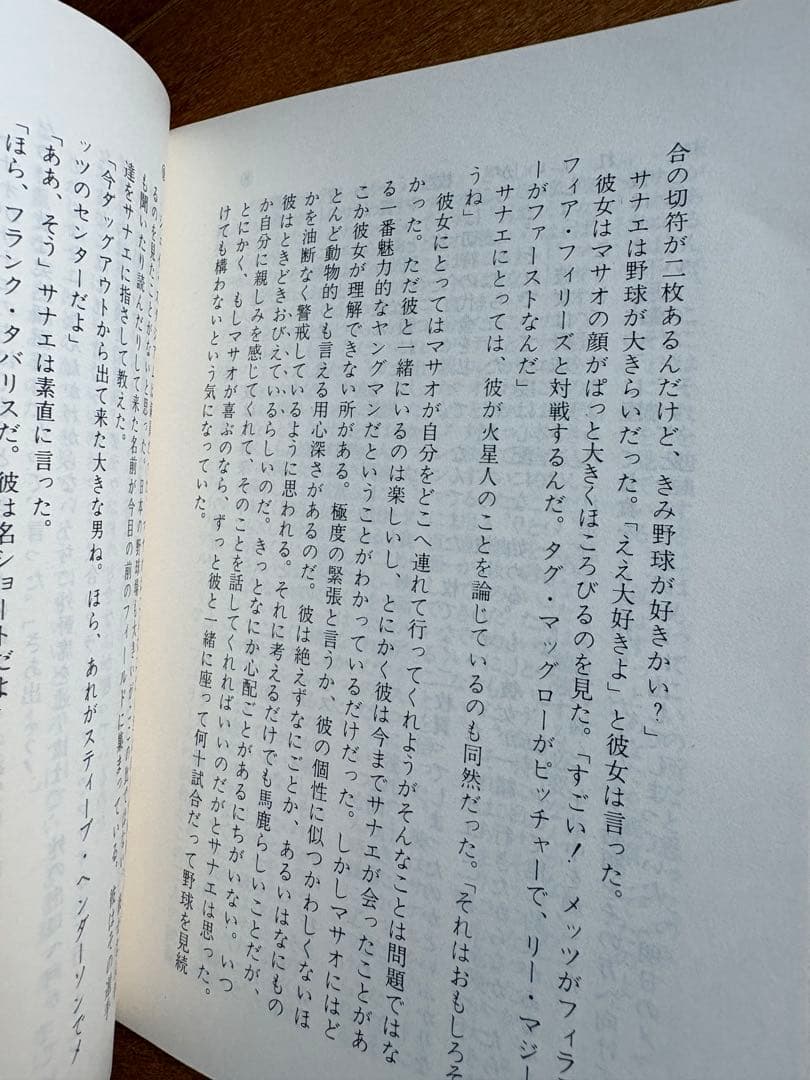 合の切符が二枚あるんだけど、きみ野球が好きかい？」
サナエは野球が大きらいだった。「ええ大好きよ」と彼女は言った。
彼女はマサオの顔がぱっと大きくほころびるのを見た。「すごい！　メッツがフィラデル
フィア・フィリーズと対戦するんだ。タグ・マッグローがピッチャーで、リー・マジー
ーがファーストなんだ」
サナエにとっては、彼が火星人のことを論じているのも同然だった。「それはおもしろそ
うね」
彼女にとってはマサオが自分をどこへ連れて行ってくれようがそんなことは問題ではな
かった。ただ彼と一緒にいるのは楽しいし、とにかく彼は今までサナエが会ったことがあ
る一番魅力的なヤングマンだということがわかっているだけだった。しかしマサオにはど
こか彼女が理解できない所がある。極度の緊張と言うか、彼の個性に似つかわしくないほ
とんど動物的とも言える用心深さがあるのだ。彼は絶えずなにごとか、あるいはなにもの
かを油断なく警戒しているように思われる。それに考えるだけでも馬鹿らしいことだが、
彼はときどきおびえているらしいのだ。きっとなにか心配ごとがあるにちがいない。いつ
か自分に親しみを感じてくれて、そのことを話してくれればいいのだがとサナエは思った。
とにかく、もしマサオが喜ぶのなら、ずっと彼と一緒に座って何十試合だって野球を見続
けても構わないという気になっていた。
も聞いたり読んだりして来た名前が今目の前のフィールドに集まっている。
達をサナエに指さして教えた。
「今ダッグアウトから出て来た大きな男ね。ほら、あれがスティーブ・ヘンダーソンでメ
ッツのセンターだよ」
「ああ、そう」サナエは素直に言った。
「ほら、フランク・タバリスだ。彼は名ショートだよ